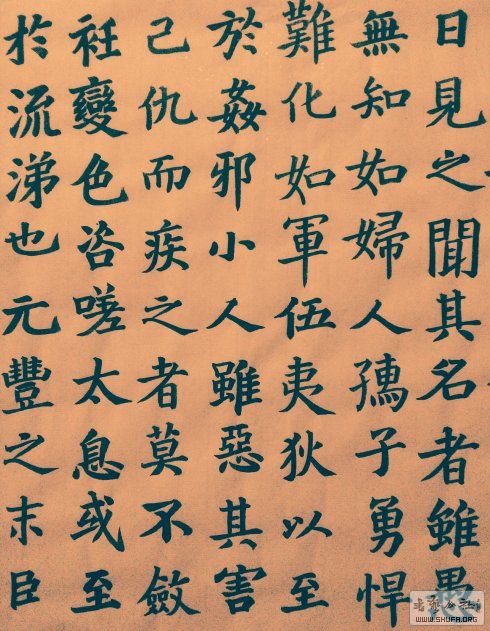 日見之聞其名者雖愚
無知如婦人孺子勇悍
難化如軍伍夷狄以至
於姦邪小人雖惡其害
己仇而疾之者莫不斂
衽變色咨嗟太息或至
於流涕也元豐之末臣
WWW.SHUFA.ORG